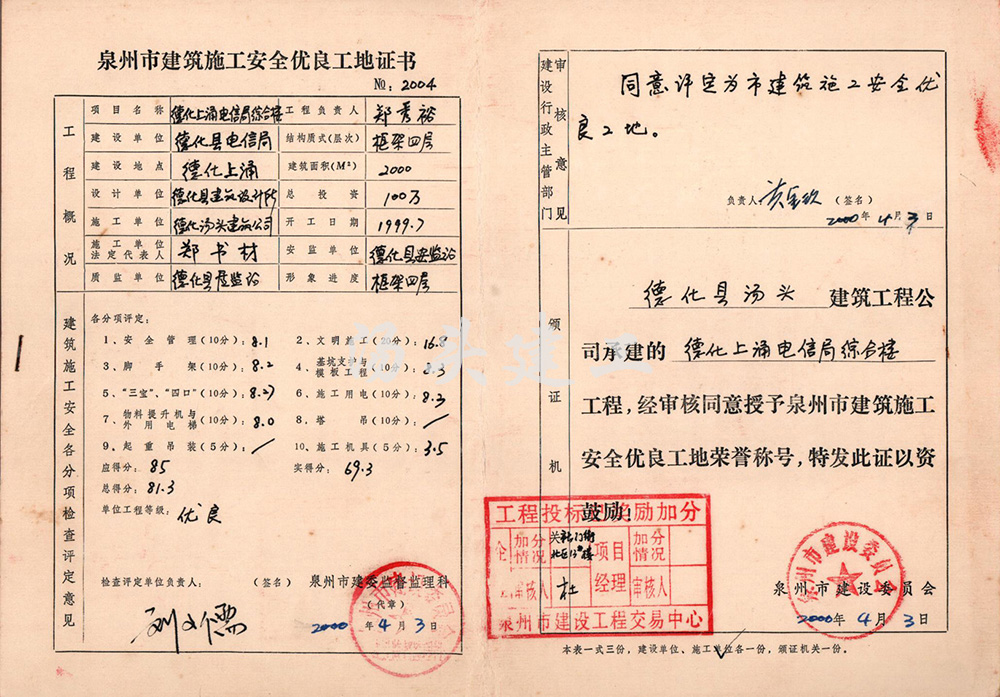 泉州市建筑施工安全优良工地证书
№：2004
工程概况
项目名称 德化上涌电信局综合楼 工程负责人 郑秀裕
建设单位 德化县电信局 结构质式(层次) 框架四层
建设地点 德化上涌 建筑面积(M²) 2000
设计单位 德化县建筑设计所 总投资 100万
施工单位 德化汤头建筑公司 开工日期 1999.7
施工单位法定代表人 郑书材 安监单位 德化县安监站
质监单位 德化县质监站 形象进度 框架四层
建筑施工安全各分项检查评定意见
各分项评定：
1、安全管理(10分)：8.1 2、文明施工(20分)：16.8
3、脚手架(10分)：8.2 4、基坑支护与模板工程(10分)：8.3
5、“三宝”、“四口”(10分)：8.27 6、施工用电(10分)：8.3
7、物料提升机与外用电梯(10分)：8.0 8、塔吊(10分)：/
9、起重吊装(5分)：/ 10、施工机具(5分)：3.5
应得分：85 实得分：69.3
总得分：81.3
单位工程等级：优良
检查评定单位负责人： (签名) 泉州市建委监督监理科
(代章)
2000年4月3日
建设行政主管部门
审核意见
同意评定为市建筑施工安全优
良工地。
负责人 (签名)
2000年4月3日
颁证机
德化县汤头 建筑工程公
司承建的 德化上涌电信局综合楼
工程，经审核同意授予泉州市建筑施工
安全优良工地荣誉称号，特发此证以资
鼓励
泉州市建设委员会
2000年4月3日
工程投标 奖励加分
企 加分情况 项目经理 加分情况
审核人 杜 审核人
泉州市建设工程交易中心
泉州市建设委员会
本表一式三份，建设单位、施工单位各一份，颁证机关一份。
汤头建工